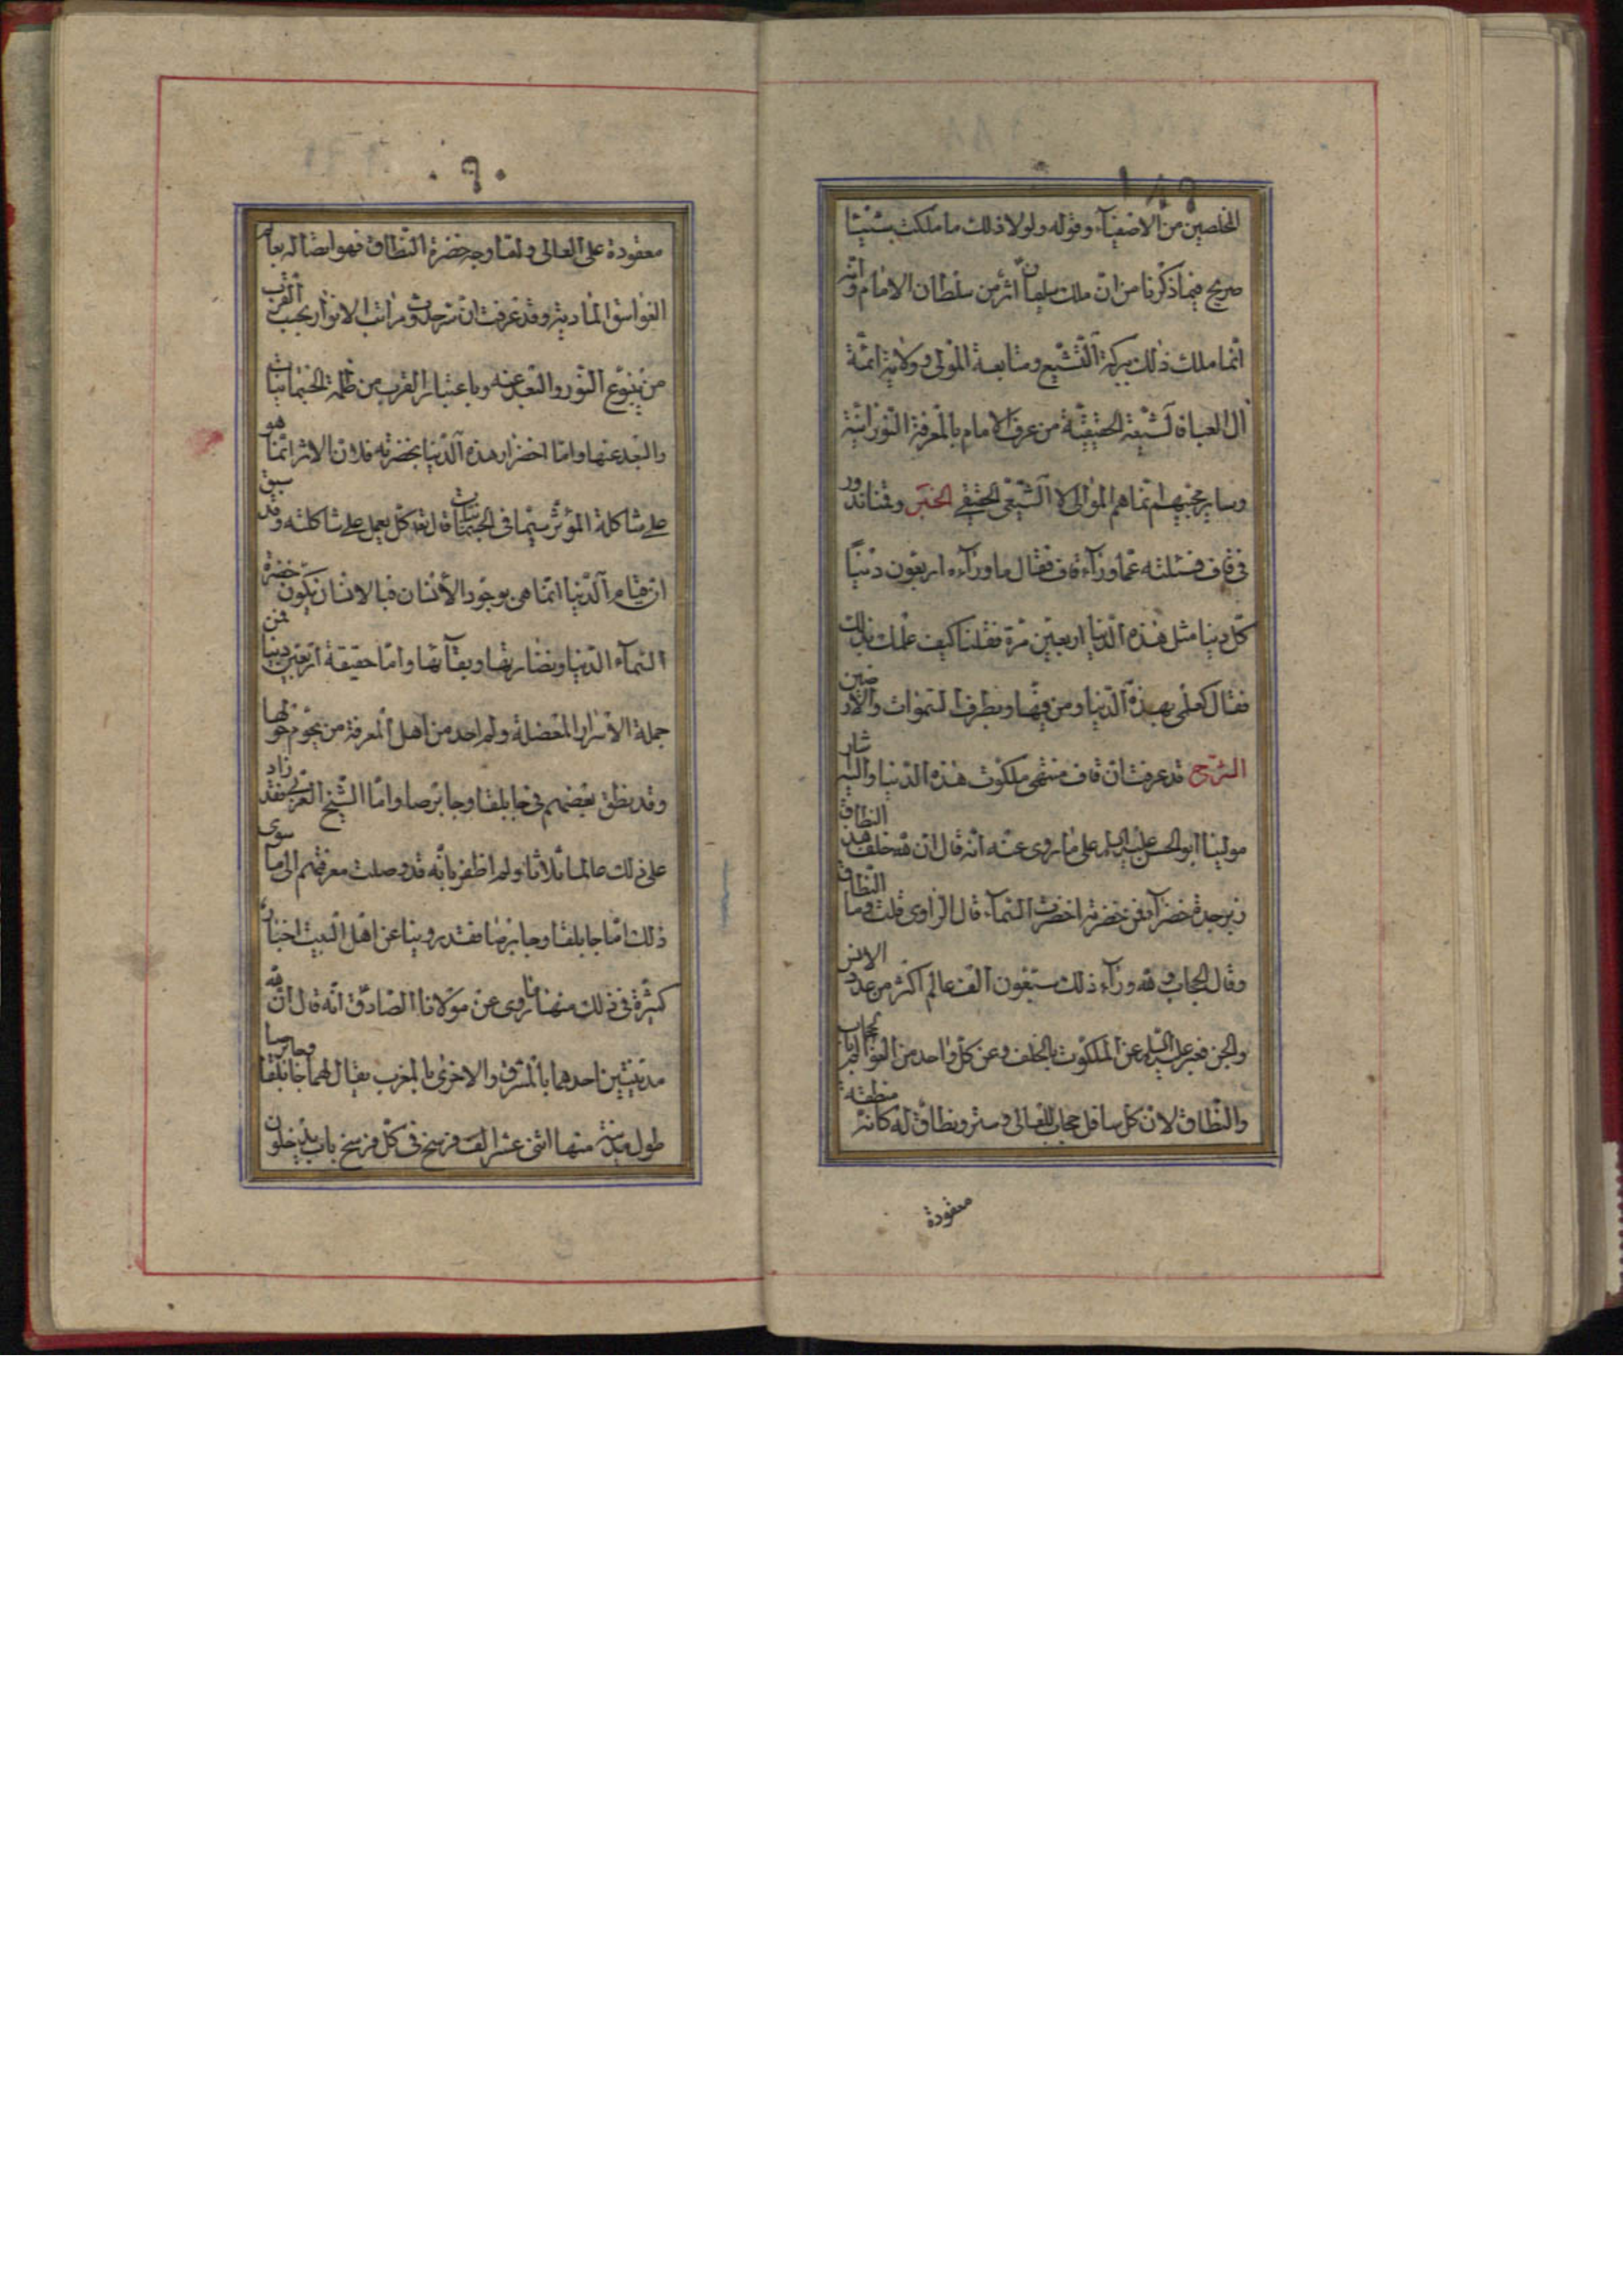 المخلصين من الاصفيآء وقوله ولولا ذلك ما ملكت شيئا
صريح فيما ذكرنا من انّ ملك سليمان اثر من سلطان الامام وانّه
انّما ملك ذلك ببركة التّشيّع ومتابعة المولى وولاية ائمّة
آل العباء لشيعة الحقيقيّة من عرف الامام بالمعرفة النّورانيّة
وساير محبّيهم انّما هم الموالى لا الشّيعى الحقيقى الخبر وقمنا ندور
فى قاف فسئلته عمّا ورآء قاف فقال ما ورآءه اربعون دنيا
كلّ دنيا مثل هذه الدّنيا اربعين مرّة فقلنا كيف علمك بذلك
فقال كعلمى بهذه الدّنيا ومن فيها وبطرف السّموات والارضين
الشّرح قد عرفت انّ قاف منتهى ملكوت هذه الدّنيا واليه اشار
مولينا ابو الحسن عليه السلام على ما روى عنه انّه قال انّ لله خلف هذا النطاق
زبرجدة خضرآء فمن خضرتها اخضرّت السّمآء قال الراوى قلت وما النّطاق
قال الحجاب ولله ورآء ذلك سبعون الف عالم اكثر من عدد الانس
والجن فعبر عليه السلام عن الملكوت بالخلف وعن كلّ واحد من العوالم بالحجاب
والنّطاق لانّ كلّ سافل حجاب للعالى وستر ونطاق له كانّه منطقة
معقودة
٦٠
معقودة على العالى ولمّا وجه خضرة النّطاق فهو ايضا له بعالم
الغواسق الماديّة وقد عرفت انّ تنزّلات مراتب الانوار بحسب القرب
من ينبوع النّور والبعد عنه وباعتبار القرب من ظلمة الجسمانيات
والبعد عنها وامّا اخضرار هذه الدّنيا بخضرته فلانّ الاثر انّما هو
على مشاكلة المؤثّر سيّما فى الجسمانيات قال تعه كلّ يعمل على شاكلته وقد سبق
انّ قيام الدّنيا انّما هى بوجود الأنسان فبالانسان تكون خضرة
السّمآء الدّنيا ونضارتها وبقآئها وامّا حقيقة اربعين دنيا فمن
جملة الاسرار المعضلة ولم احد من اهل المعرفة من يحوم حولها
وقد نطق بعضهم فى جابلقا وجابرصا وامّا الشّيخ العربى فقد زاد
على ذلك عالما ثلاثا ولم اظفر بانّه قد وصلت معرفتهم الى ما سوى
ذلك امّا جابلقا وجابرصا فقد روينا عن اهل البيت اخبار
كثيرة فى ذلك منها ما روى عن مولانا الصّادق انّه قال انّ لله
مدينتين احدهما بالمشرق والاخرى بالمغرب يقال لهما جابلقا وجابرسا
طول مدينة منها اثنى عشر الف فرسخ فى كلّ فرسخ باب يدخلون